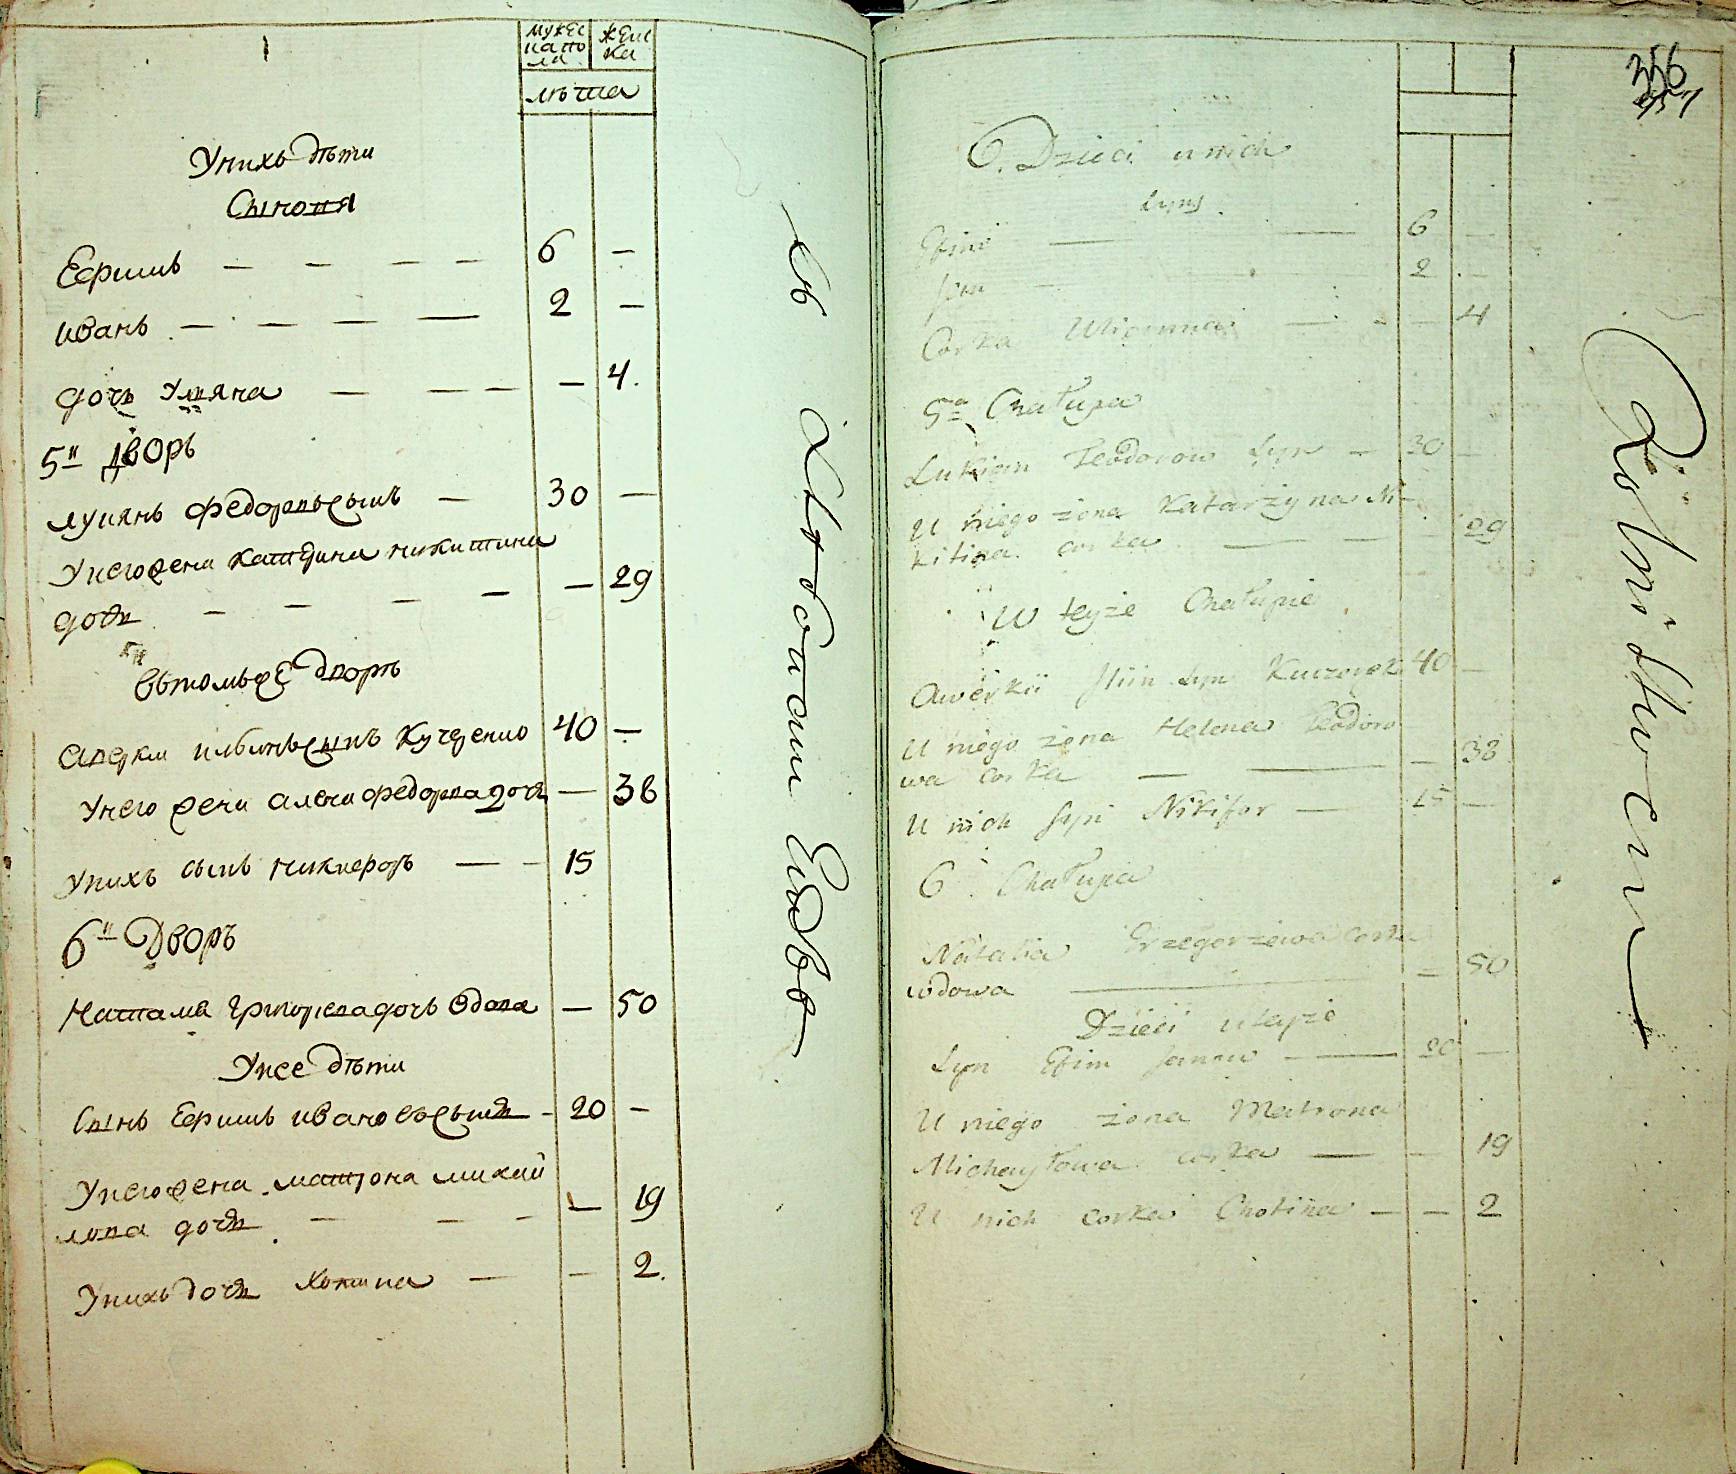 мужес
ка по
ла
жен
ка
лѣта
У нихъ дѣти
Сыновя
Ефимъ — — — — 6 —
иванъ — — — — 2 —
дочь Уляна — — — — 4.
5й дворъ
лукянъ федоровъ сынъ — 30 —
У него жена катерина никитина
дочь — — — — — 29
въ томъ же дворѣ
аверки ильинъ сынъ Кучеренко 40 —
У него жена алена федорова дочь — 38
У нихъ сынъ никифоръ — — 15
6й Дворъ
Наталия григорьева дочь вдова — 50
У нее дѣти
Сынъ Ефимъ ивановъ сынъ - 20 —
У него жена матрона михай
лова дочь — — — — 19
У нихъ дочь хотина — — 2.
356
357
6. Dzieci u nich
Syny
Efim — — 6 —
Jan — 2 —
Corka Ulianna — - — 4
5ta Chałupa
Lukian Teodorow Syn — 30 —
U niego żona Katarzyna Ni-
kitina corka — — 29
W teyże Chałupie
Awerkii Iliin Syn Kuczerenko 40 —
U niego żona Helena Teodoro
wa corka — — — 38
U nich syn Nikifor — 15 —
6 Chałupa
Natalia Grzegorzewa corka
wdowa — — 50
Dzieci u teyże
Syn Efim Janow — 20 —
U niego żona Matrona
Michayłowa corka — — 19
U nich corka Chotina — — 2